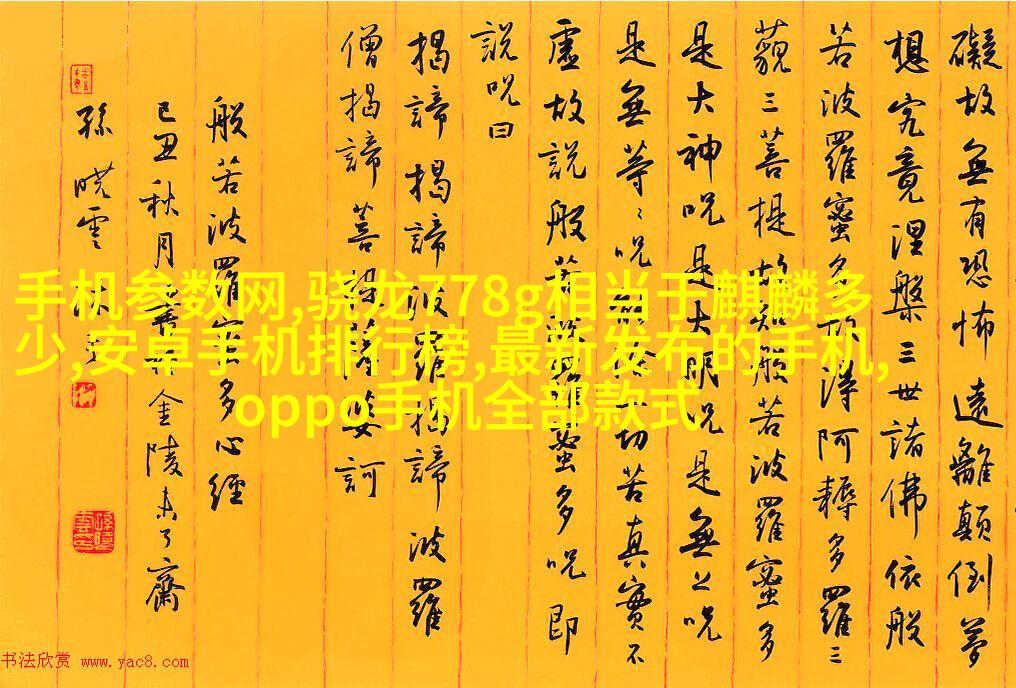 礙故無有恐怖遠離顛倒夢
想究竟涅槃三世諸佛依般
若波羅蜜多故得阿耨多羅三
藐三菩提故知般若波羅蜜多
是大神呪是大明呪是無上呪
是無等〻呪能除一切苦真實不
虛故說般若波羅蜜多呪即
說呪曰
揭諦揭諦波羅揭諦波羅
僧揭諦菩提薩婆訶
般若波羅蜜多心經
己丑秋月書於金陵未了齋
孫曉雲
手机参数网,骁龙778g相当于麒麟多
少,安卓手机排行榜,最新发布的手机,
oppo手机全部款式
书法欣赏 www.yac8.com